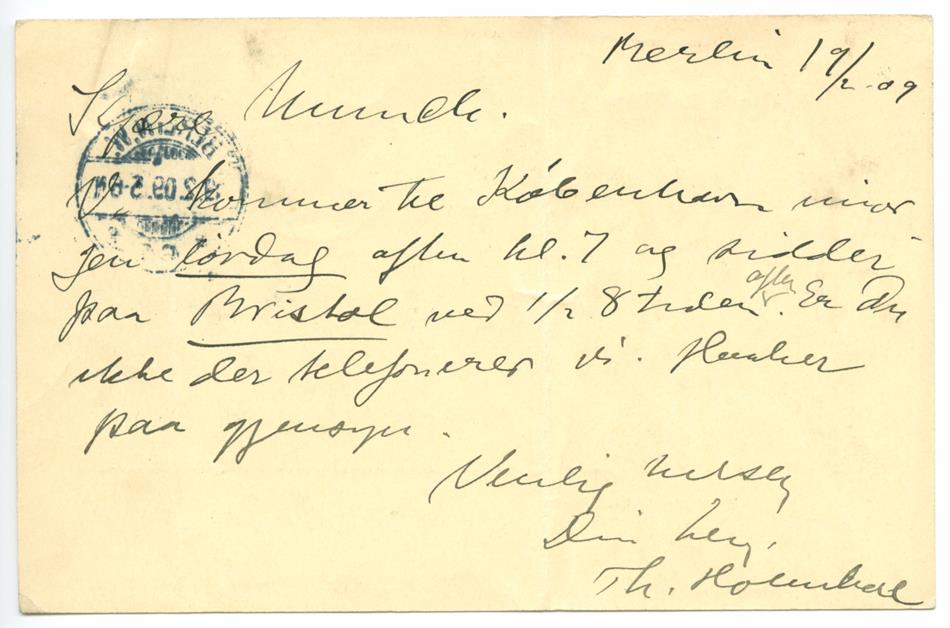 Berlin 19/2 09
Kjære Munch.
Vi kommer til København imor
gen lørdag aften kl. 7 og sidder
paa Bristol ved 1/2 8 tiden aften. Er Du
ikke der telefonerer vi. Haaber
paa gjensyn.
Venlig hilsen
Din
Th.
BERLIN.W.